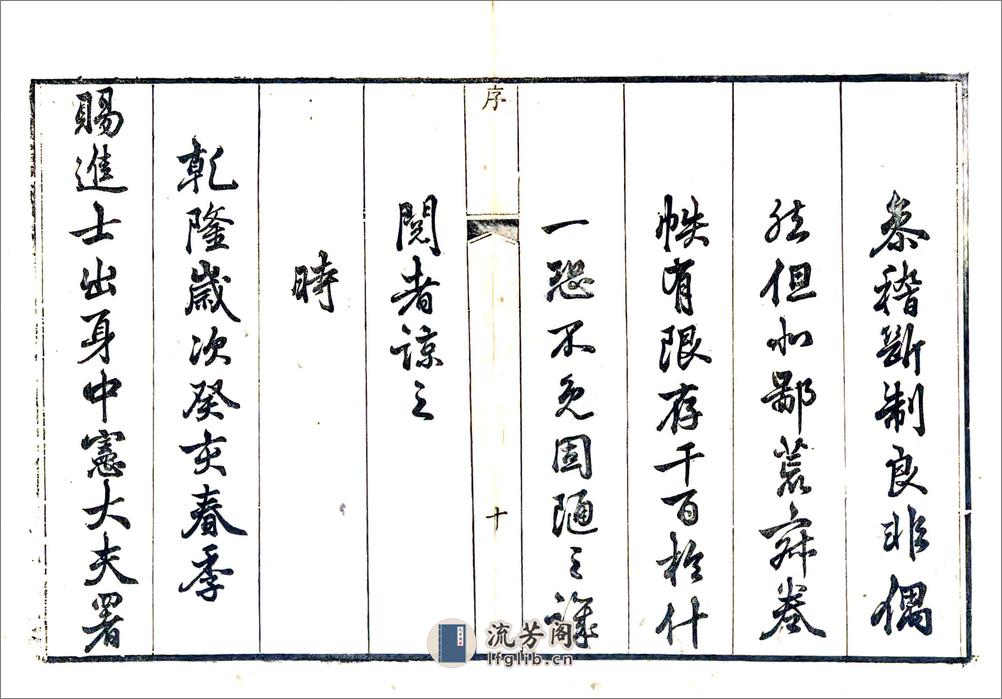 叅稽斷制良非偶
然但鄙荒卷
帙有限存千百於什
一恐不免固陋之譏
序
十
閱者諒之
時
乾隆歲次癸亥春季
賜進士出身中憲大夫署
流芳阁
lfglib.cn